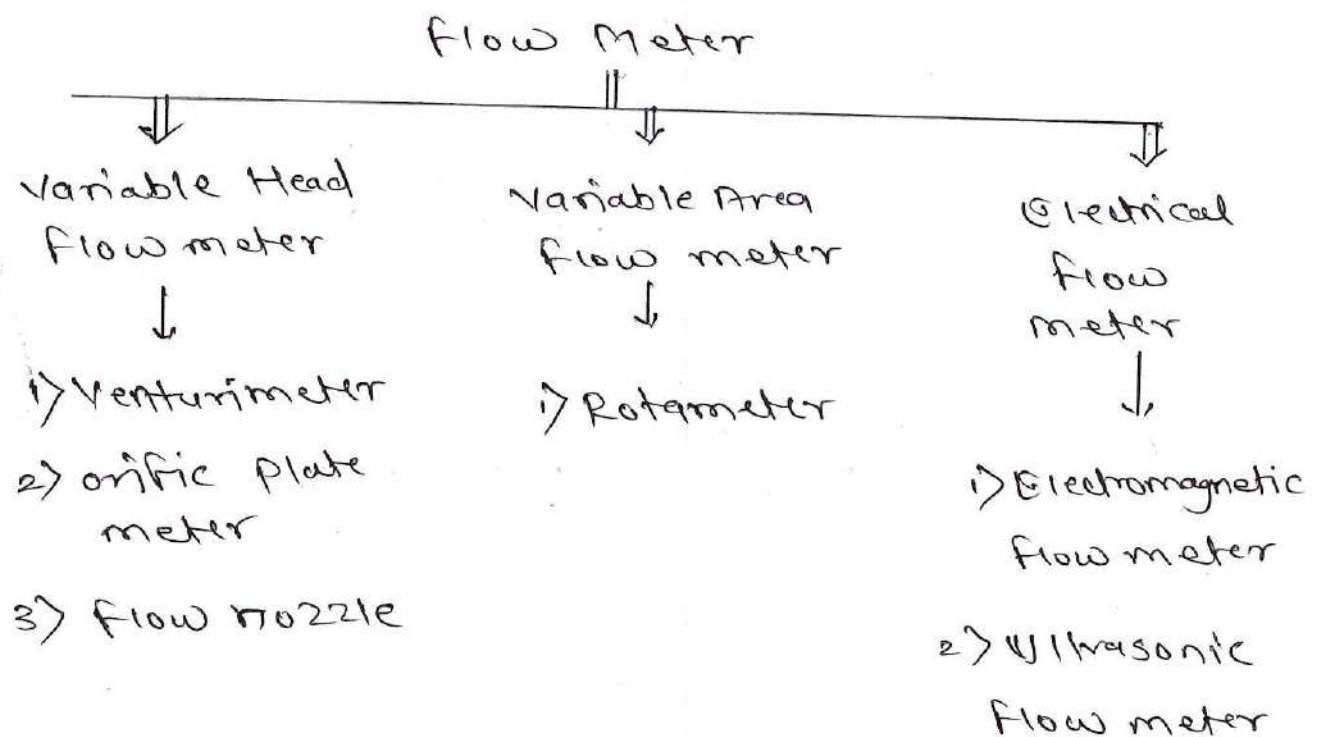 Flow Meter
Variable Head
flow meter
1) Venturimeter
2) orific plate
meter
3) flow nozzle
Variable Area
flow meter
1) Rotameter
Electrical
flow
meter
1) Electromagnetic
flow meter
2) Ultrasonic
flow meter